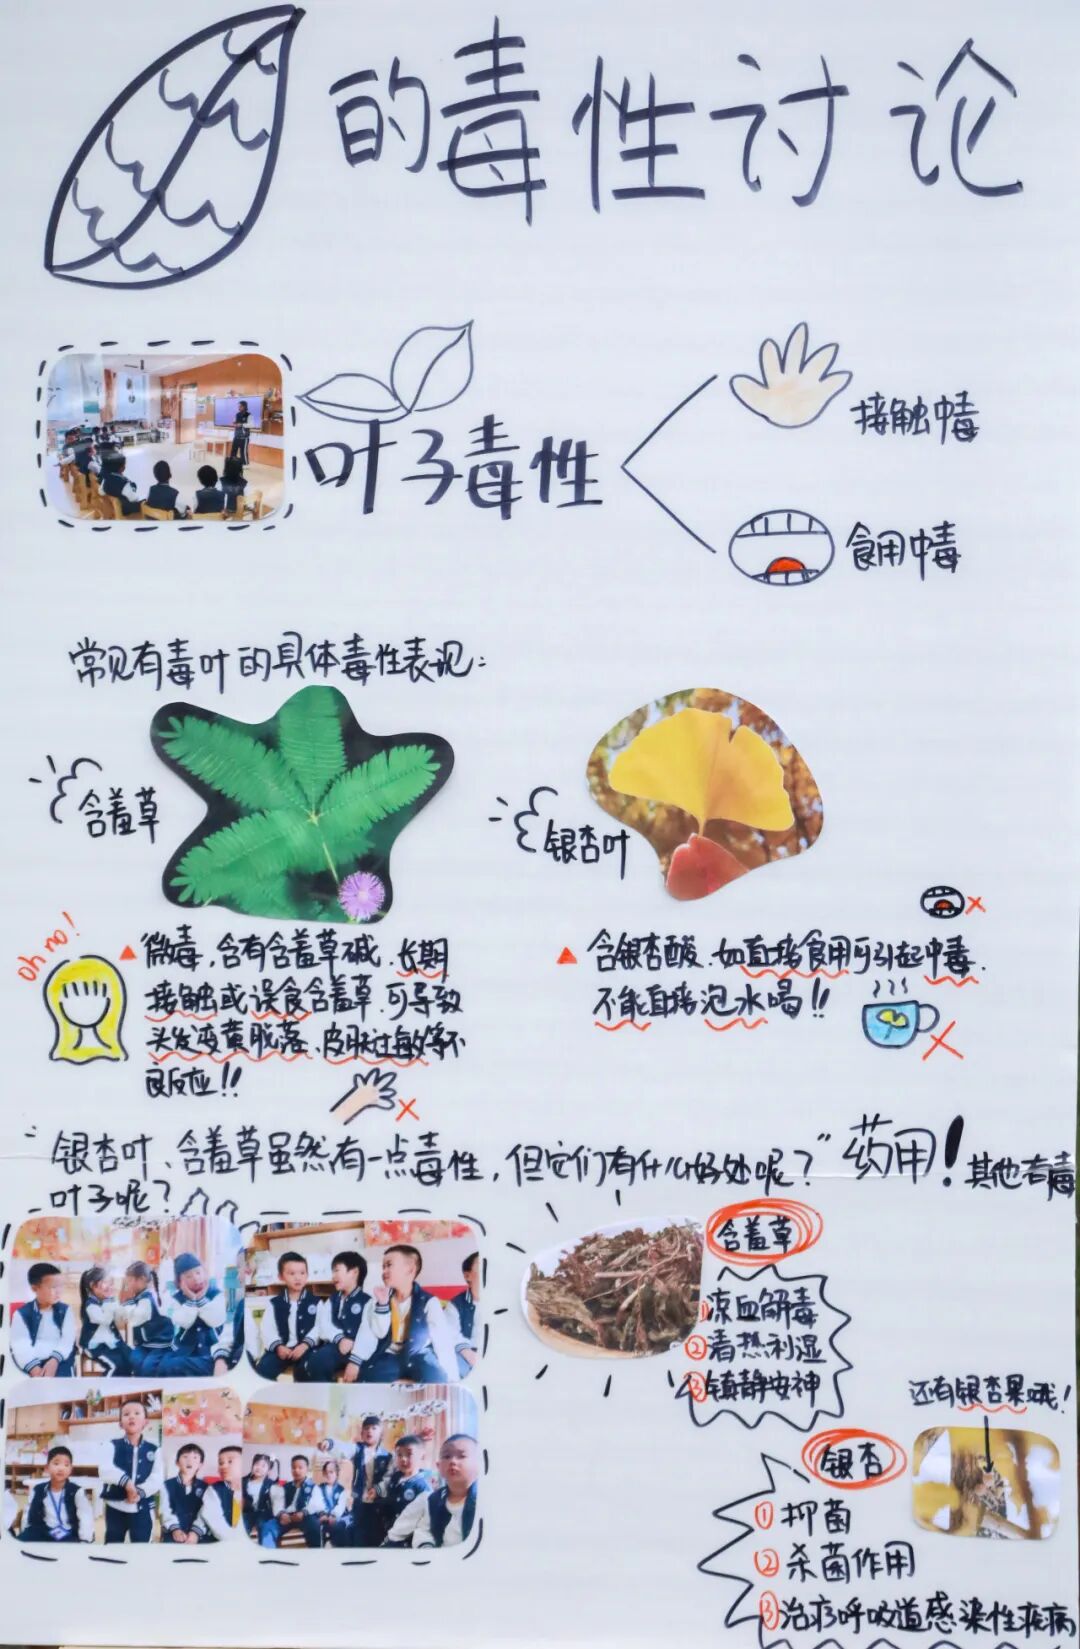 的毒性讨论
叶子毒性
接触中毒
食用中毒
常见有毒叶的具体毒性表现:
含羞草
银杏叶
oh no!
微毒,含有含羞草碱.长期
接触或误食含羞草.可导致
头发变黄脱落、皮肤过敏等不
良反应!!
含银杏酸.如直接食用可引起中毒.
不能直接泡水喝!!
银杏叶、含羞草虽然有一点毒性,但它们有什么好处呢?"药用!其他有毒
叶子呢?
含羞草
①凉血解毒
②清热利湿
③镇静安神
还有银杏果哦!
银杏
①抑菌
②杀菌作用
③治疗呼吸道感染性疾病